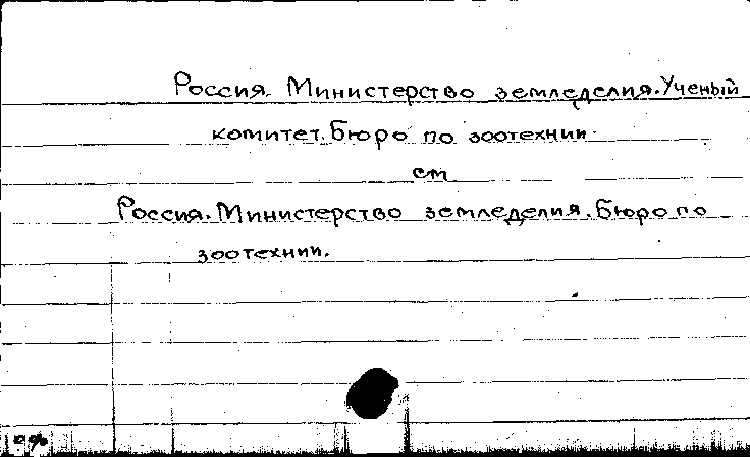 Россия. Министерство земледелия. Ученый
комитет. Бюро по зоотехнии.
см
Россия. Министерство земледелия. Бюро по
зоотехнии.